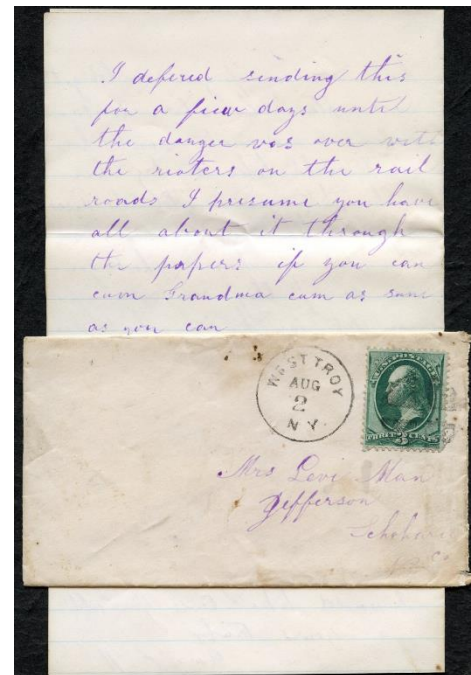 I defered sending this
for a fiew days until
the danger was over with
the rioters on the rail
roads I presume you have
all about it through
the papers if you can
cum Grandma cum as sune
as you can
WEST TROY
AUG
2
N Y
U.S. POSTAGE
THREE 3 CENTS
Mrs Levi Man
Jefferson
Schohari
Co